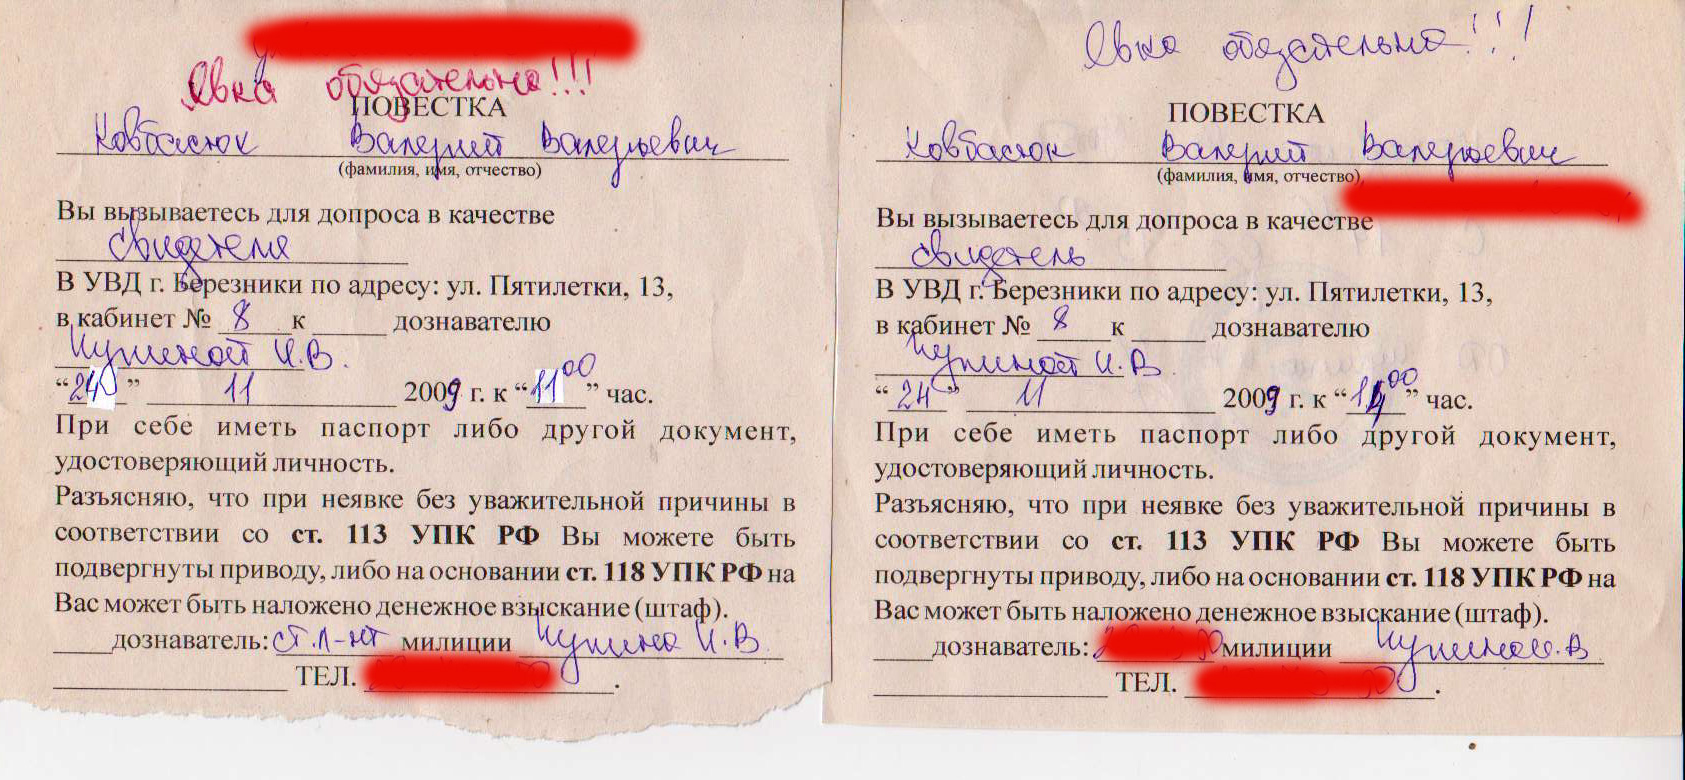 Явка обязательно!!!
ПОВЕСТКА
Ковбасюк Валерий Валерьевич
(фамилия, имя, отчество)
Вы вызываетесь для допроса в качестве
свидетеля
В УВД г. Березники по адресу: ул. Пятилетки, 13,
в кабинет № 8 к дознавателю
И.В.
“24” 11 2009 г. к “11 00” час.
При себе иметь паспорт либо другой документ,
удостоверяющий личность.
Разъясняю, что при неявке без уважительной причины в
соответствии со ст. 113 УПК РФ Вы можете быть
подвергнуты приводу, либо на основании ст. 118 УПК РФ на
Вас может быть наложено денежное взыскание (штаф).
дознаватель: ст. л-нт милиции И.В.
ТЕЛ.
Явка обязательно!!!
ПОВЕСТКА
Ковбасюк Валерий Валерьевич
(фамилия, имя, отчество)
Вы вызываетесь для допроса в качестве
свидетель
В УВД г. Березники по адресу: ул. Пятилетки, 13,
в кабинет № 8 к дознавателю
И.В.
“24” 11 2009 г. к “ 00” час.
При себе иметь паспорт либо другой документ,
удостоверяющий личность.
Разъясняю, что при неявке без уважительной причины в
соответствии со ст. 113 УПК РФ Вы можете быть
подвергнуты приводу, либо на основании ст. 118 УПК РФ на
Вас может быть наложено денежное взыскание (штаф).
дознаватель: милиции И.В.
ТЕЛ.